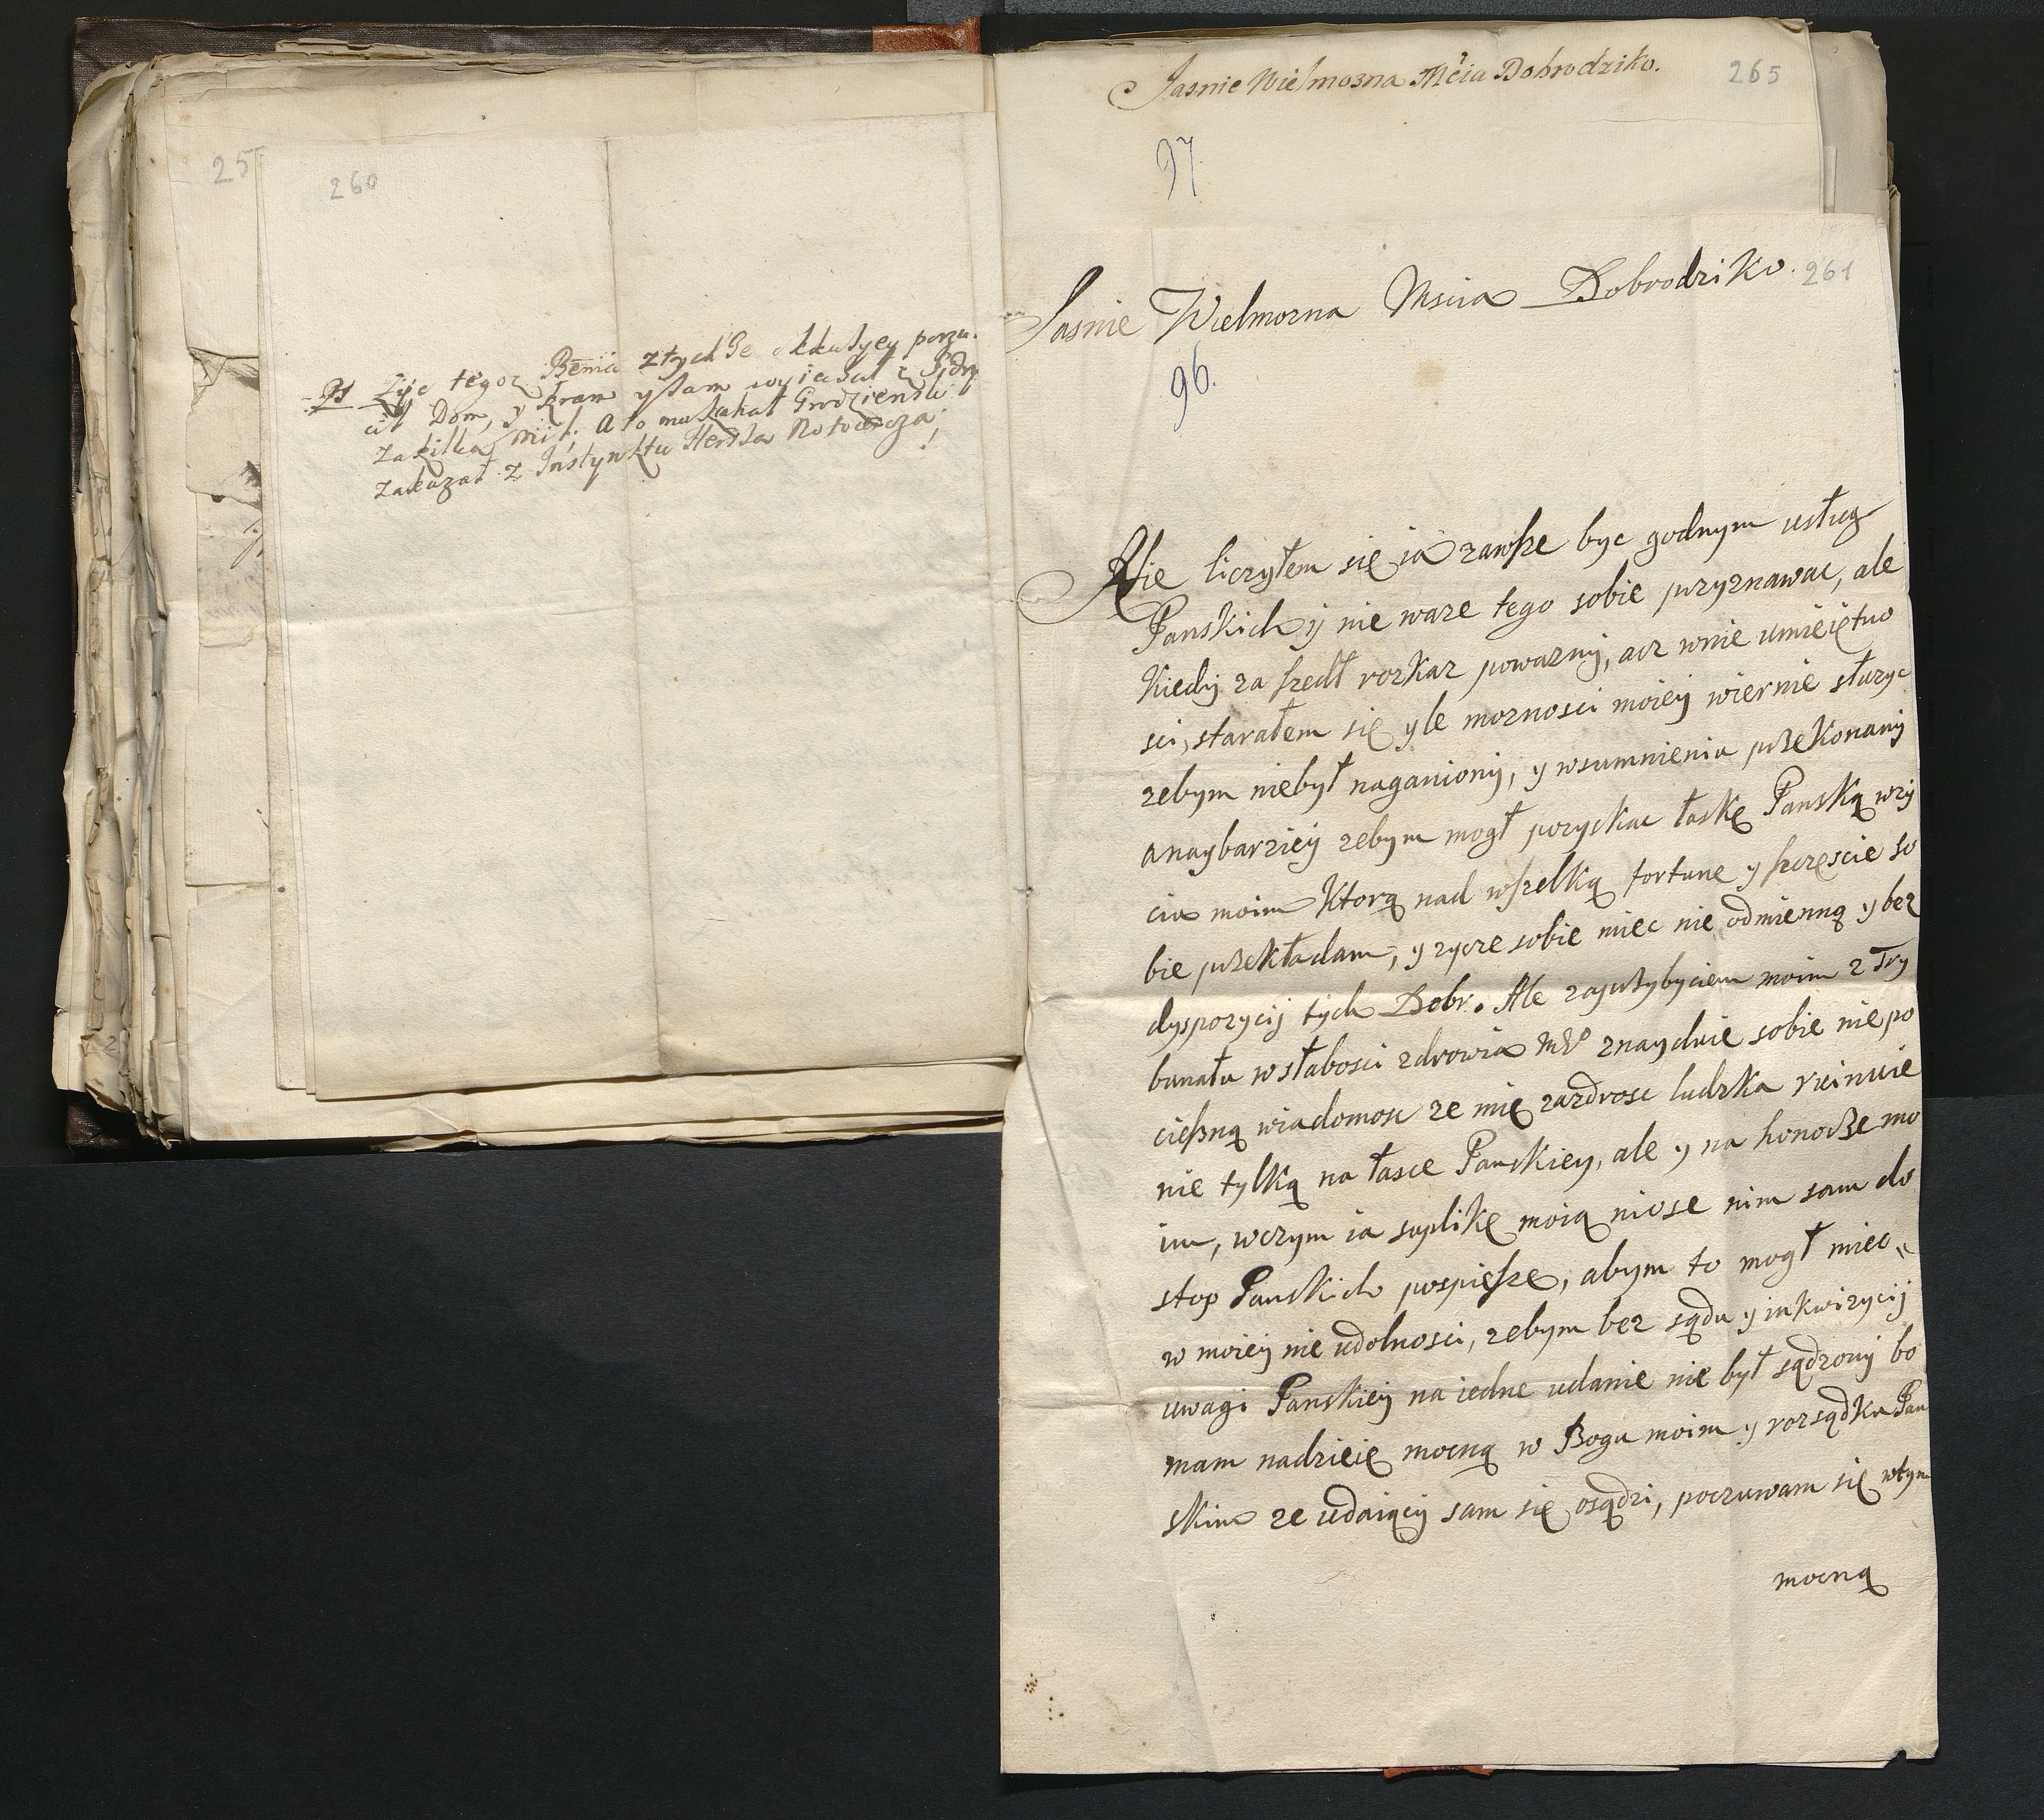 25
260
Zyć tegoz Benia z tych ze okkazyey porzu
cił Dom, y kram y sam wyiechał z
za kilka mil. A to mu kahał Grodzienski
zakazał z Instynktu Herszka
Jasnie Wielmozna Mcia Dobrodziko.
265
97.
Jasnie Wielmozna Mscia Dobrodziko.
261
96.
Nie liczyłem się ia zawsze byc godnym usług
Panskich y nie waze tego sobie przyznawac, ale
Kiedy za szedł rozkaz powazny, acz wnie umieiętno
sci, starałem się yle moznosci moiey wiernie słuzyc
zebym niebył naganiony, y wsumnieniu przekonany
a naybarziey zebym mogł pozyskac łaskę Panską wzy
ciu moim Ktorą nad wszelką fortune y szczęscie so
bie przekładam, y zycze sobie miec nie odmienną y bez
dyspozycij tych Dobr. Ale za przybyciem moim z Try
bunału w słabosci zdrowia znayduie sobie nie po
cieszną wiadomosc ze mię zazdrosc ludzka ruinuie
nie tylką na łasce Panskiey, ale y na honorze mo
im, wczym ia suplikę moią niose nim sam do
stop Panskich pospiesze, abym to mogł miec
w moiey nie udolnosci, zebym bez sądu y inkwizycij
uwagi Panskiey na iedne udanie nie był sądzony bo
mam nadzieię mocną w Bogu moim y rozsądku Pan
skim ze udaiący sam się osądzi, poczuwam się wtym
mocną